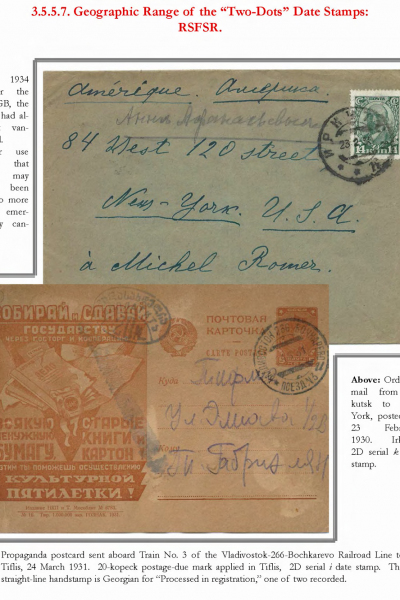 3.5.5.7. Geographic Range of the “Two-Dots” Date Stamps:
RSFSR.
1934
r the
GB, the
had al-
van-
use
that
may
been
o more
emer-
y can-
Amérique. Америка.
84 West 120 street
New-York. U.S.A.
à Michel Romer.
ИРКУ
23
14
СОБИРАЙ и СДАВАЙ
ГОСУДАРСТВУ
ЧЕРЕЗ ГОСТОРГ И КООПЕРАЦИЮ
ВСЯКУЮ
НЕНУЖНУЮ
БУМАГУ
СТАРЫЕ
КНИГИ и
КАРТОН
ЭТИМ ТЫ ПОМОЖЕШЬ ОСУЩЕСТВЛЕНИЮ
КУЛЬТУРНОЙ
ПЯТИЛЕТКИ!
ПОЧТОВАЯ
КАРТОЧКА
CARTE POSTALE
Куда
Кому
Above: Ord
mail from
kutsk to
York, poste
23 Febr
1930. Irk
2D serial к
stamp.
Propaganda postcard sent aboard Train No. 3 of the Vladivostok-266-Bochkarevo Railroad Line to
Tiflis, 24 March 1931. 20-kopeck postage-due mark applied in Tiflis, 2D serial i date stamp. Th
straight-line handstamp is Georgian for “Processed in registration,” one of two recorded.